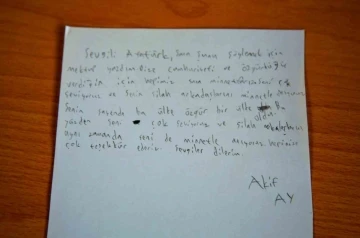 Sevgili Atatürk, Sana şunu söylemek için
mektubu yazdım. Bize cumhuriyeti ve özgürlüğü
verdiğin için hepimiz sana minnettarız. Seni çok
seviyoruz ve Senin silah arkadaşlarını minnetle anıyoruz.
Senin sayende bu ülke özgür bir ülke oldu. Bu
yüzden seni çok seviyoruz ve silah arkadaşlarını
aynı zamanda seni de minnetle anıyoruz hepinize
çok teşekkür ederim. Sevgiler dilerim.
Akif
AY